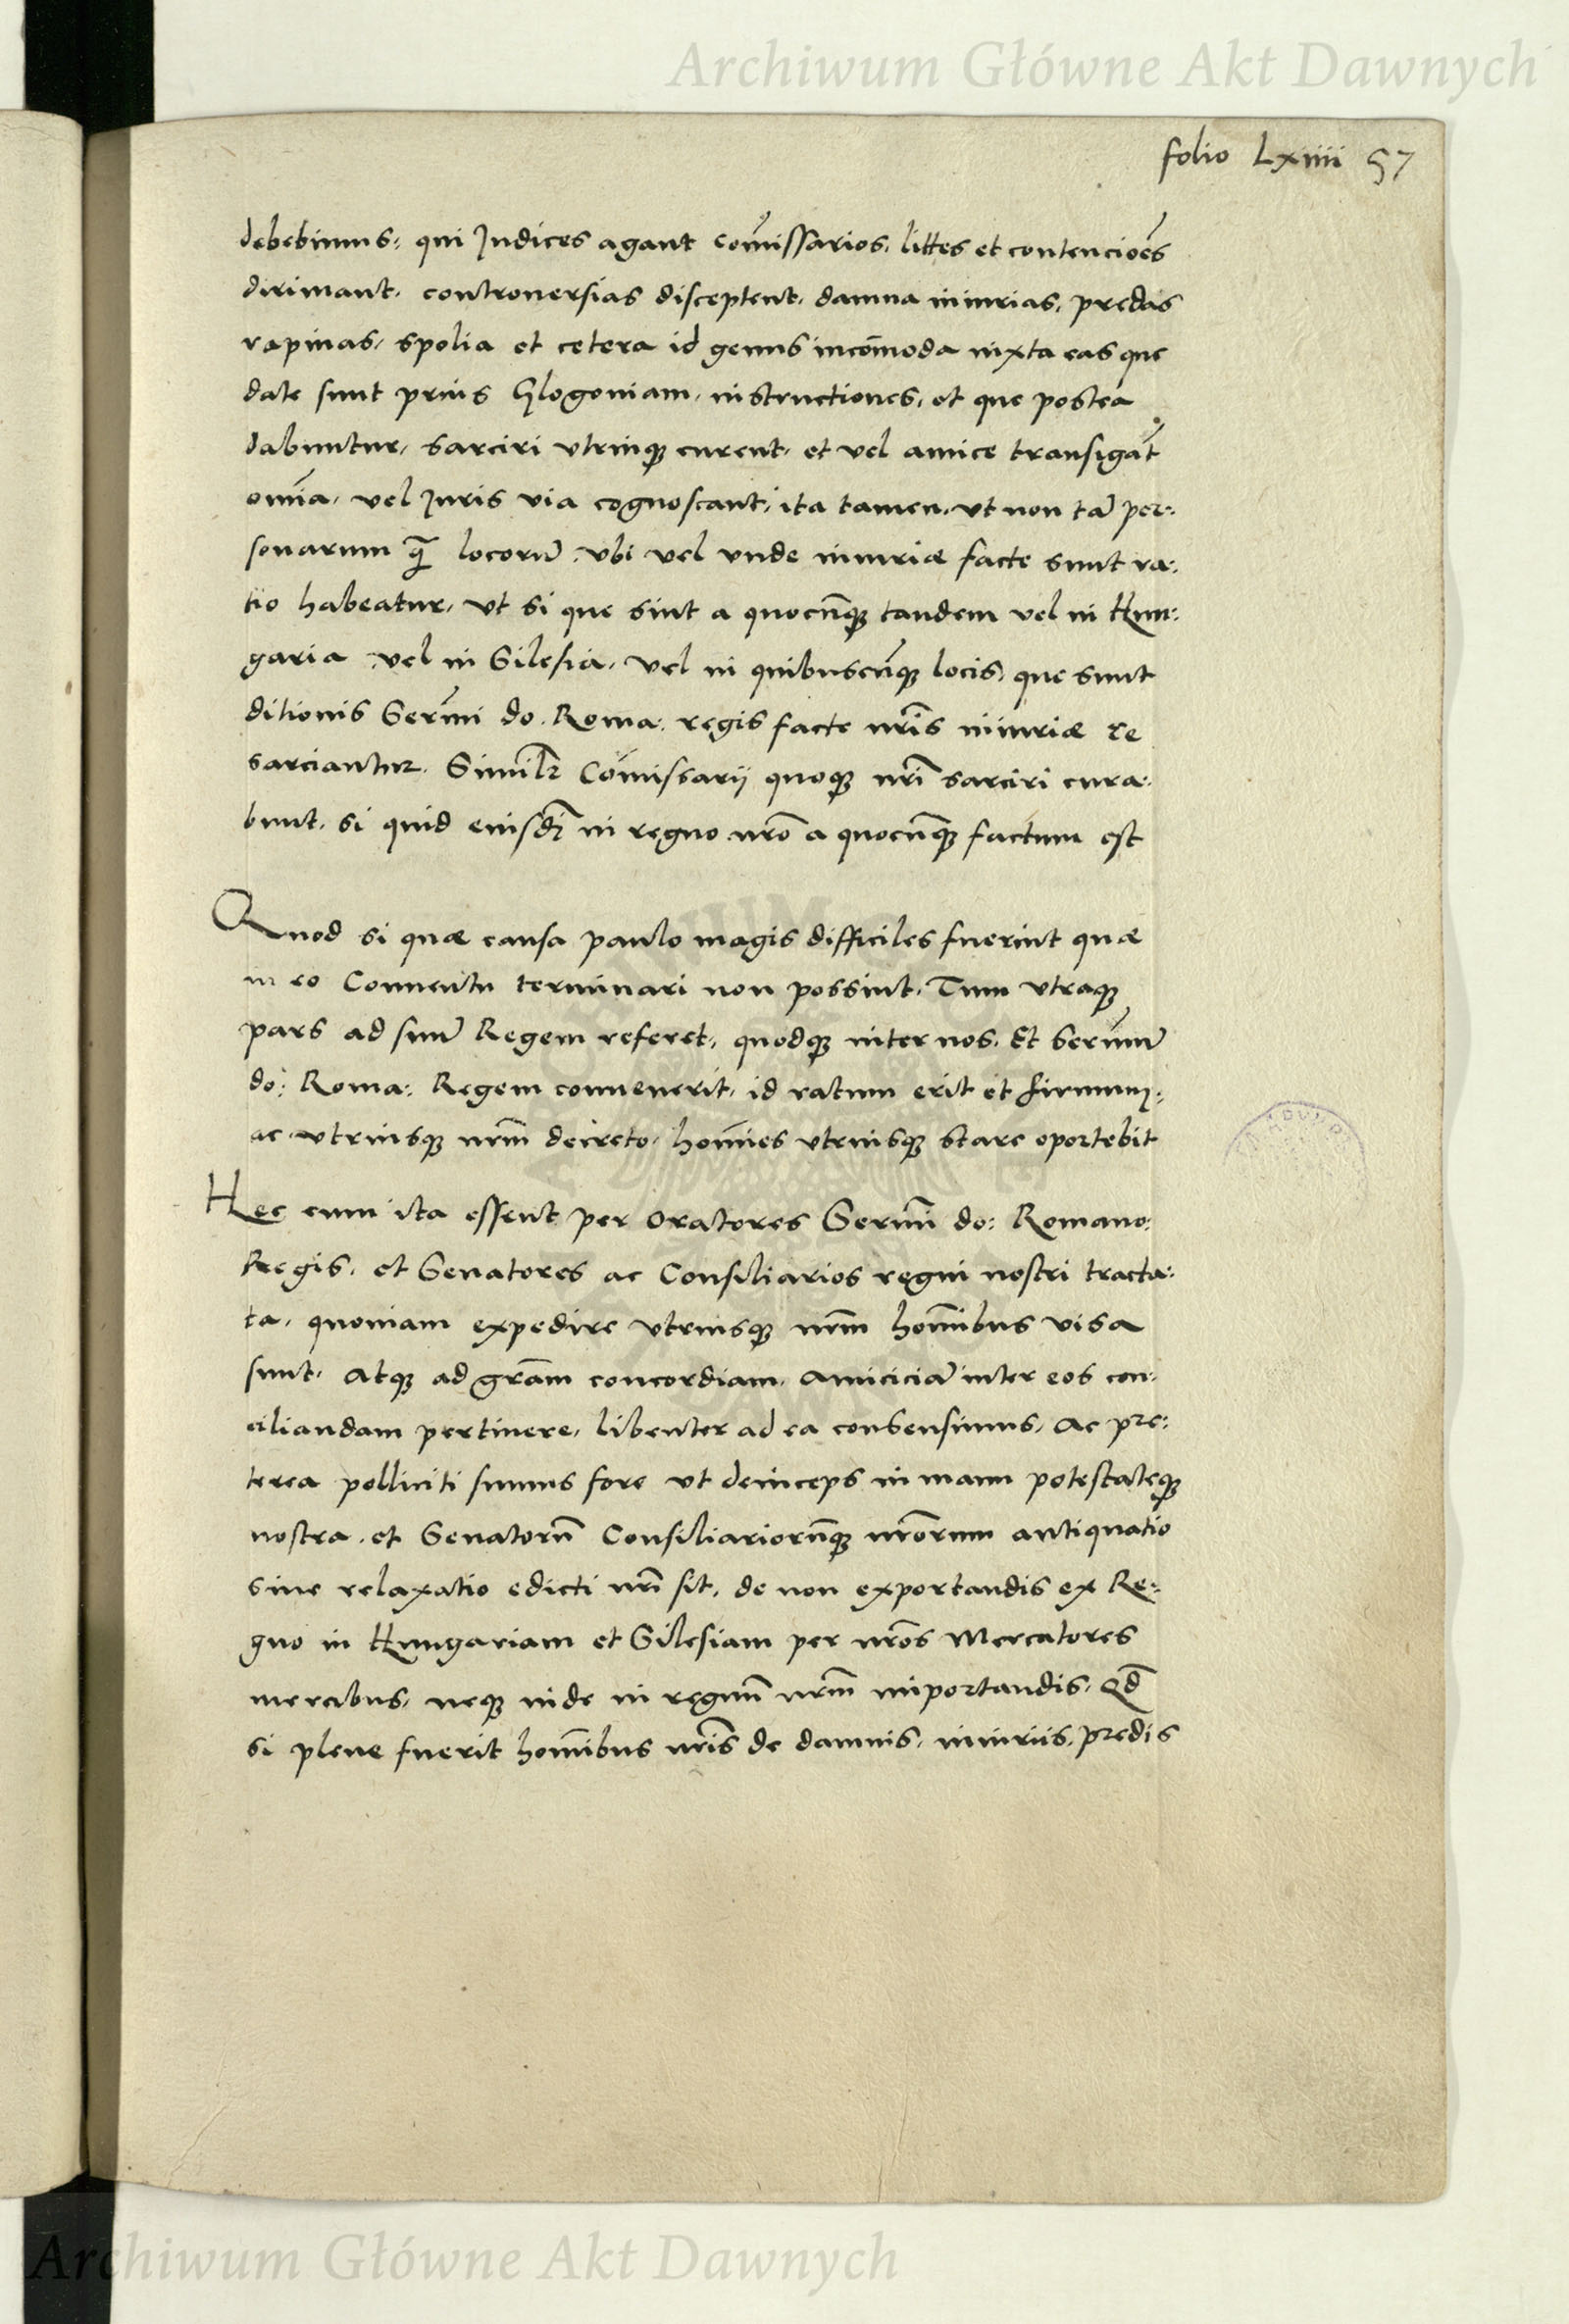 Archiwum Główne Akt Dawnych
folio Lxiiii 57
debebimus, qui Judices agant com̃issarios, littes et contencioẽs
dirimant, controuersias disceptent, damna iniurias, predas
rapinas, spolia et cetera id genus incom̃oda iuxta eas que
date sunt prius Glogoniam, instructiones, et que postea
dabuntur, sarciri vtrinqꝫ curent, et vel amice transigãt
om̃ia, vel Juris via cognoscant, ita tamen, vt non tã per:
sonarum q̃ locorũ, vbi vel vnde iniuriæ facte sunt ra:
tio habeatur, vt si que sint a quocũqꝫ tandem vel in Hun:
garia vel in Silesia, vel in quibuscũqꝫ locis, que sunt
ditionis Serm̃i do. Roma: regis facte nr̃is iniuriæ re
sarciantur. Similr̃ Com̃issarij quoqꝫ nr̃i sarciri cura:
bunt, si quid eiusdẽ in regno nr̃o a quocũqꝫ factum est
Quod si quæ causa paulo magis difficiles fuerint quæ
in eo Conuentu terminari non possint, Tum vtraqꝫ
pars ad suũ Regem referet, quodqꝫ inter nos, Et Serm̃ũ
do: Roma: Regem conuenerit, id ratum erit et firmum:
ac vtriusqꝫ nr̃m decreto, hom̃ies vtriusqꝫ stare oportebit
Hec cum ita essent per Oratores Serm̃i do: Romano:
Regis, et Senatores ac Consiliarios regni nostri tracta:
ta, quoniam expedire vtriusqꝫ nr̃m hom̃ibus visa
sunt, atqꝫ ad gr̃am concordiam, amiciciã inter eos con:
ciliandam pertinere, libenter ad ea consensimus, ac pre:
terea polliciti sumus fore vt deinceps in manu potestateqꝫ
nostra, et Senatorũ Consiliariorũqꝫ nr̃orum antiquatio
siue relaxatio edicti nr̃i sit, de non exportandis ex Re:
gno in Hungariam et Silesiam per nr̃os Mercatores
mercibus, neqꝫ inde in regnũ nr̃m importandis, Qd̃
si plene fuerit hom̃ibus nr̃is de damnis, iniuriis, predis
Archiwum Główne Akt Dawnych